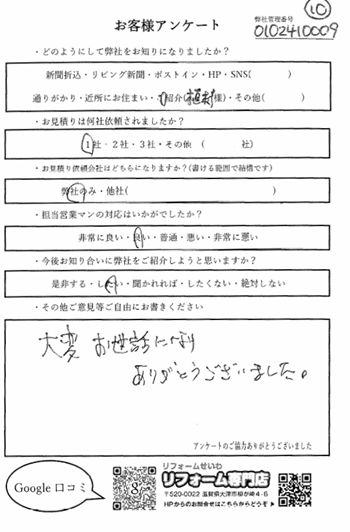 ⑩
お客様アンケート
弊社管理番号
0102410009
・どのようにして弊社をお知りになりましたか？
新聞折込・リビング新聞・ポストイン・HP・SNS(　　　)
通りがかり・近所にお住まい・ご紹介(植村様)・その他(　　　)
・お見積りは何社依頼されましたか？
1社・2社・3社・その他 (　　　社)
・お見積り依頼会社はどちらになりますか？(書ける範囲で結構です)
弊社のみ・他社(　　　)
・担当営業マンの対応はいかがでしたか？
非常に良い・良い・普通・悪い・非常に悪い
・今後お知り合いに弊社をご紹介しようと思いますか？
是非する・したい・聞かれれば・したくない・絶対しない
・その他ご意見等ご自由にお書きください
大変 お世話になり
ありがとうございました。
アンケートのご協力ありがとうございました
Google 口コミ
g
リフォームせいわ
リフォーム専門店
〒520-0022 滋賀県大津市柳が崎4-6
HPからのお問合せはこちらからどうぞ